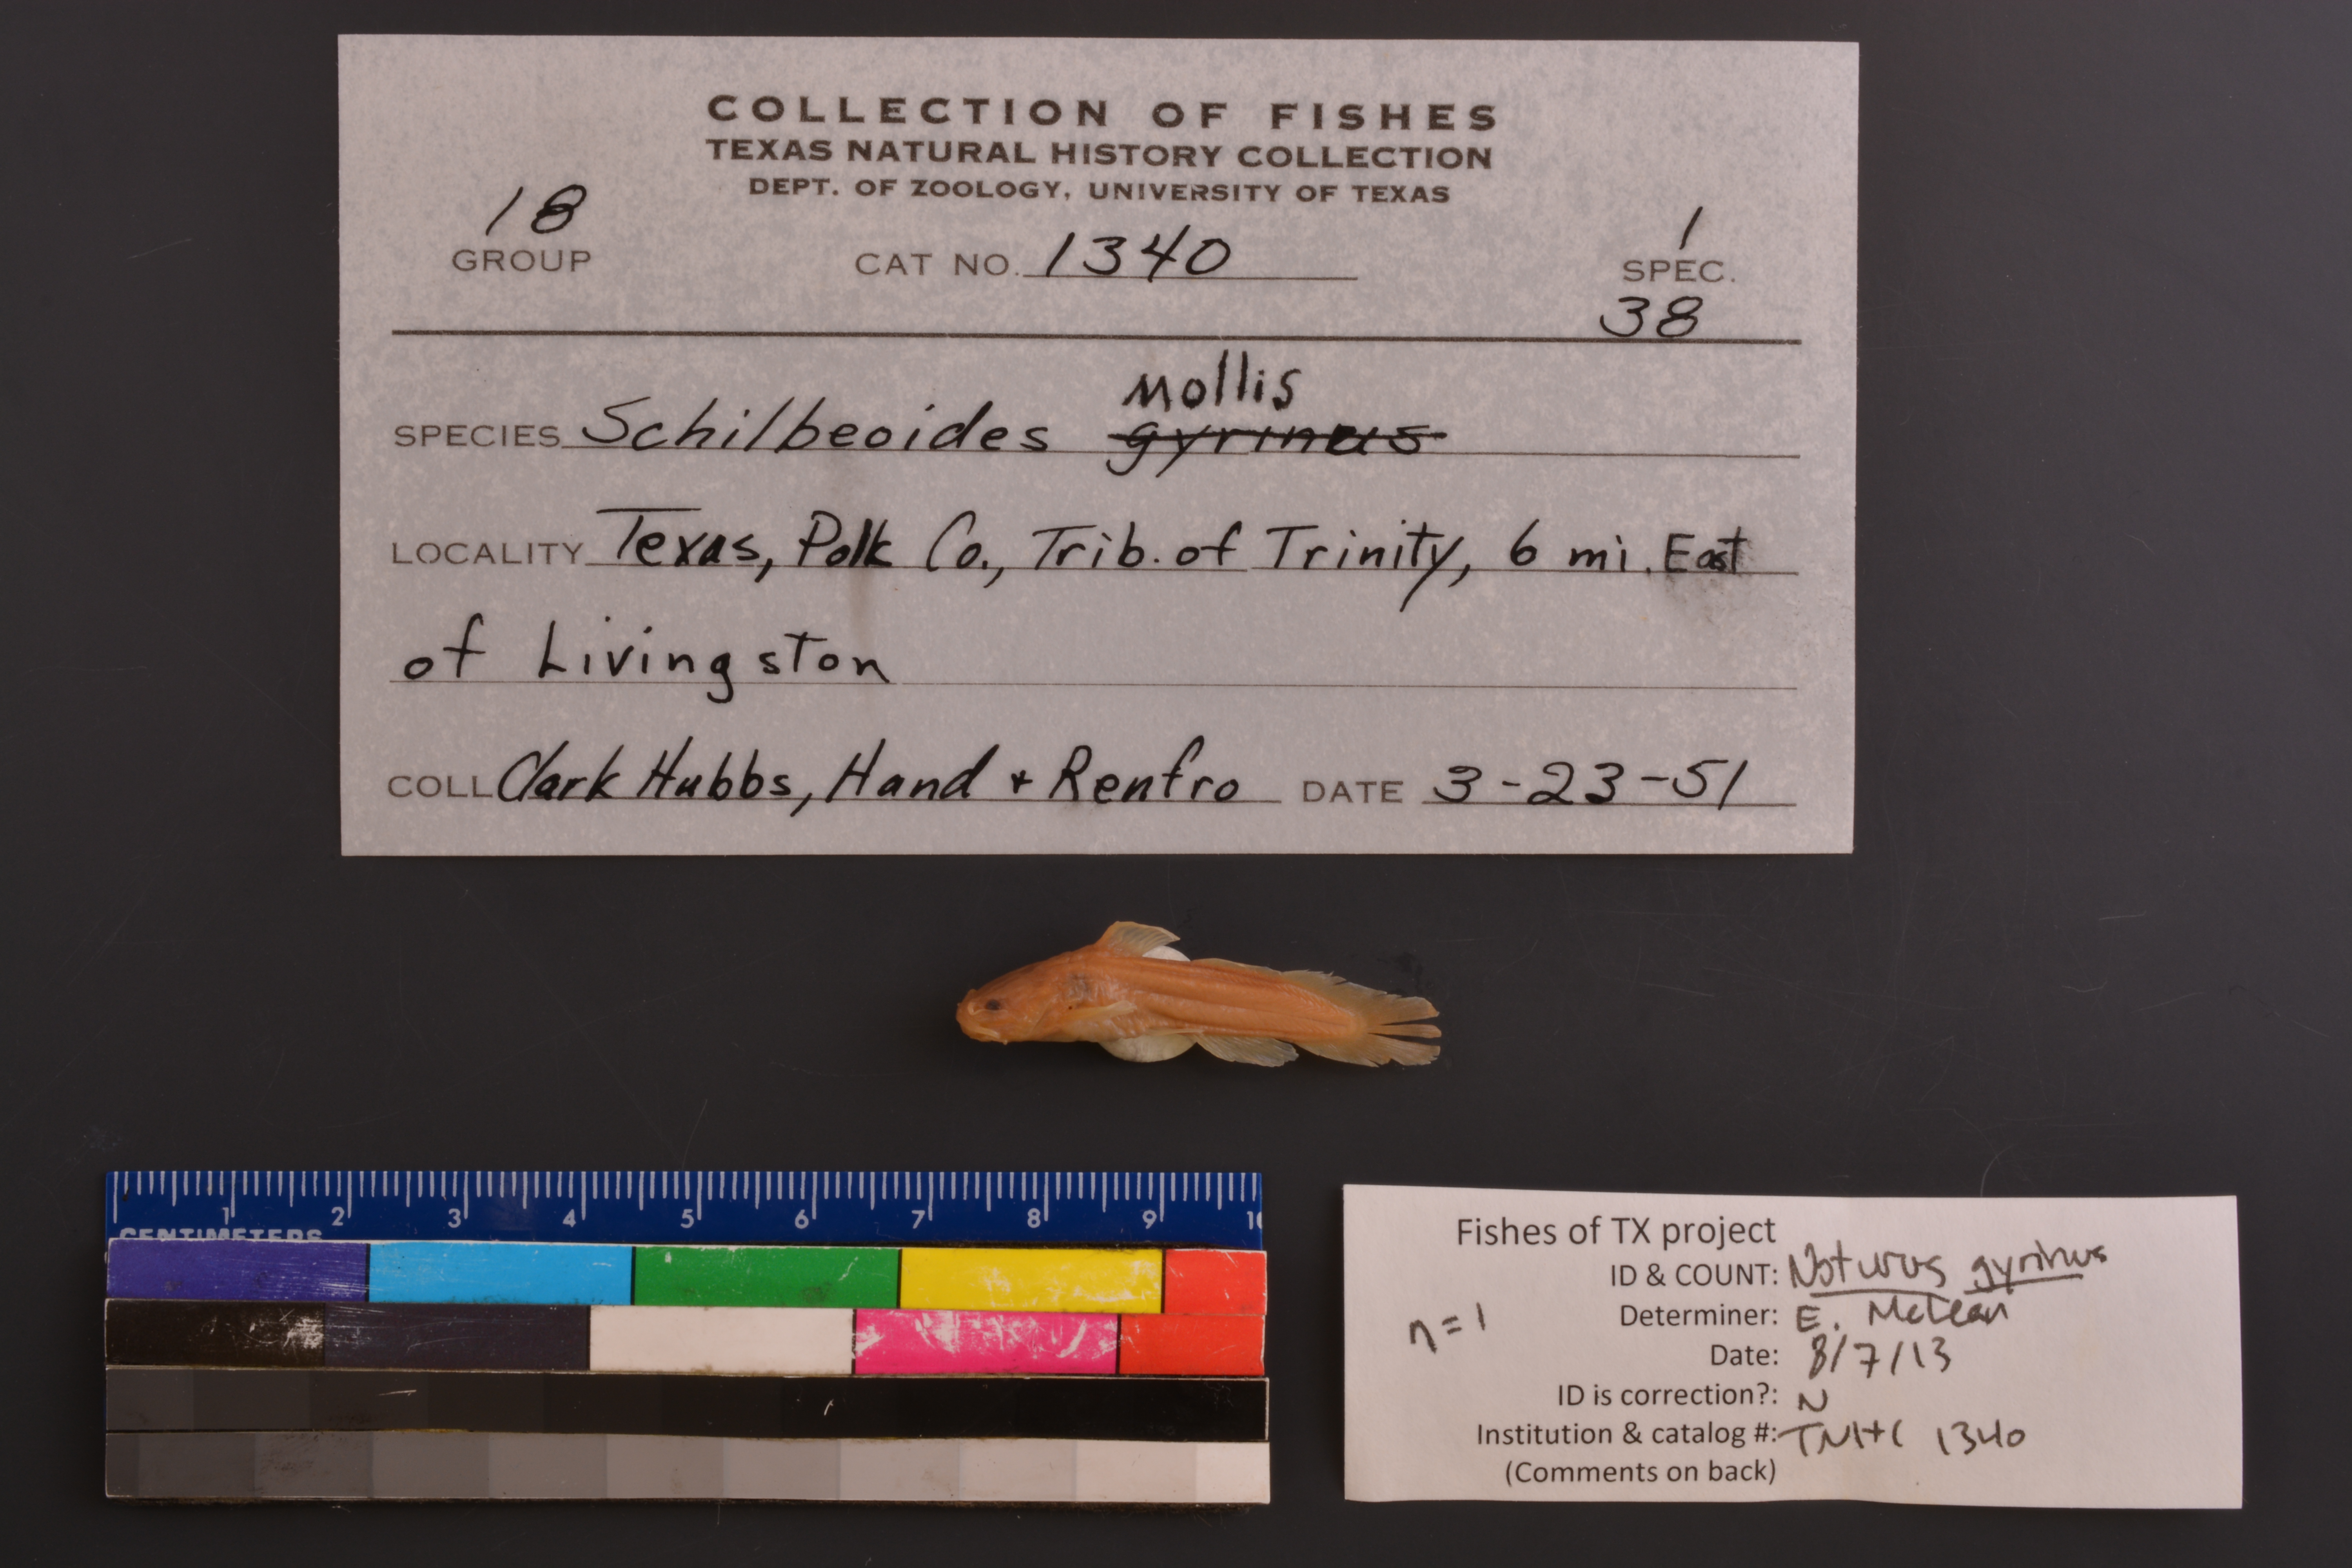 COLLECTION OF FISHES
TEXAS NATURAL HISTORY COLLECTION
DEPT. OF ZOOLOGY, UNIVERSITY OF TEXAS
18
GROUP
CAT NO. 1340
1
SPEC.
38
Mollis
SPECIES Schilbeoides gyrinus
LOCALITY Texas, Polk Co., Trib. of Trinity, 6 mi. East
of Livingston
COLL Clark Hubbs, Hand + Renfro DATE 3-23-51
1 2 3 4 5 6 7 8 9 10
CENTIMETERS
Fishes of TX project
ID & COUNT: Noturus gyrinus
n=1
Determiner: E. McLean
Date: 8/7/13
ID is correction?: N
Institution & catalog #: TNHC 1340
(Comments on back)